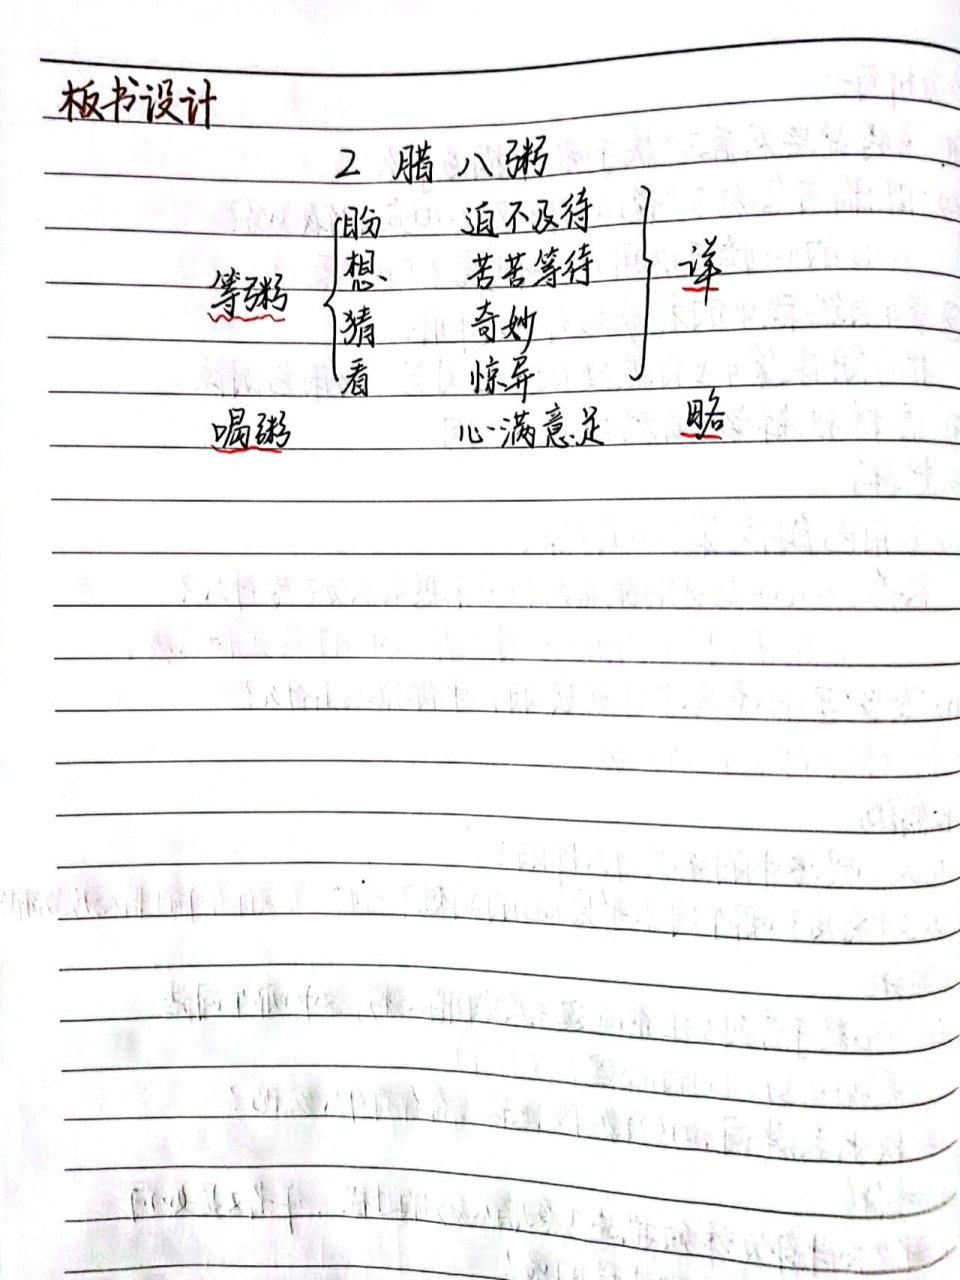 板书设计
2 腊八粥
盼 迫不及待
想 苦苦等待 详
等粥
猜 奇妙
看 惊异
喝粥 心满意足 略